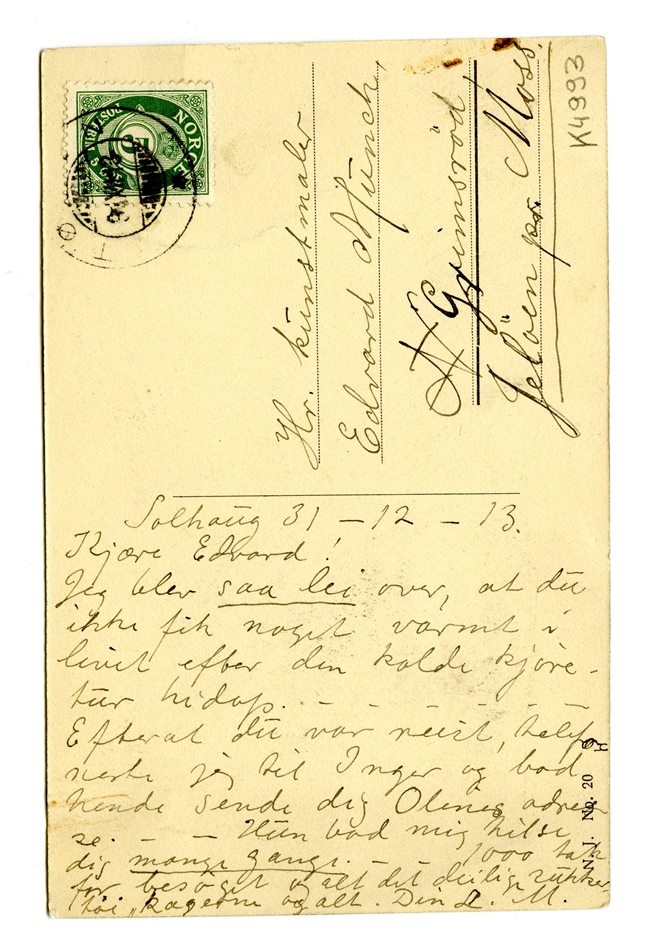 NORGE
5
K4993
Hr. kunstmaler
Edvard Munch,
Grimsröd,
Jelöen pr. Moss.
Solhaug 31 – 12 – 13.
Kjære Edvard!
Jeg blev saa lei over, at du
ikke fik noget varmt i
livet efter den kolde kjöre-
tur hidop. – – – – – –
Efterat du var reist, telefo
nerte jeg til Inger og bad
hende sende dig Olines adres
se. – – Hun bad mig hilse
dig mange gange. – – 1000 tak
for besöget og alt det deilige sukker
töi, kagerne og alt. Din L. M.
N. J. No. 20